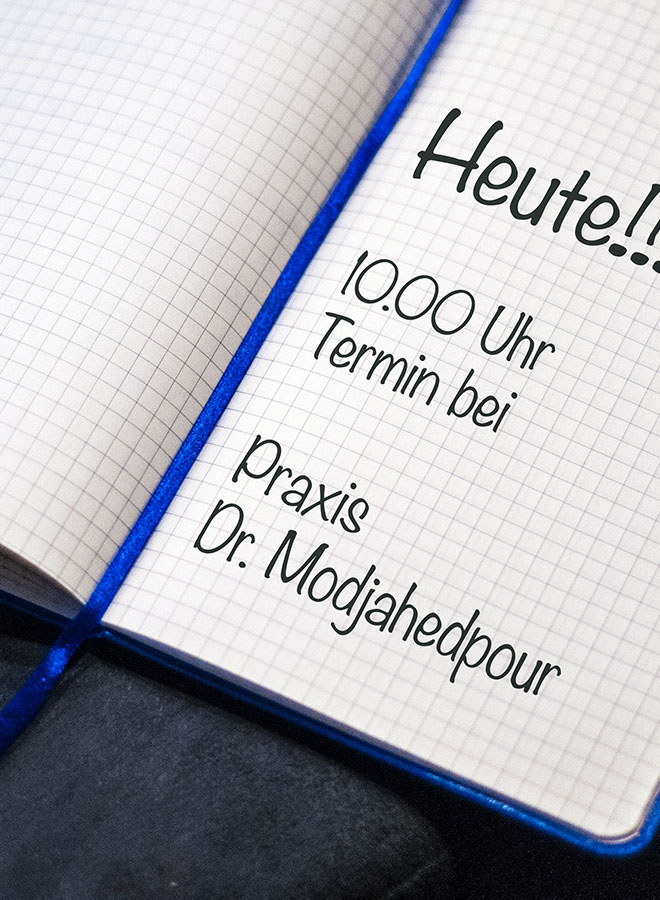 Heute!!
10.00 Uhr
Termin bei
Praxis
Dr. Modjahedpour